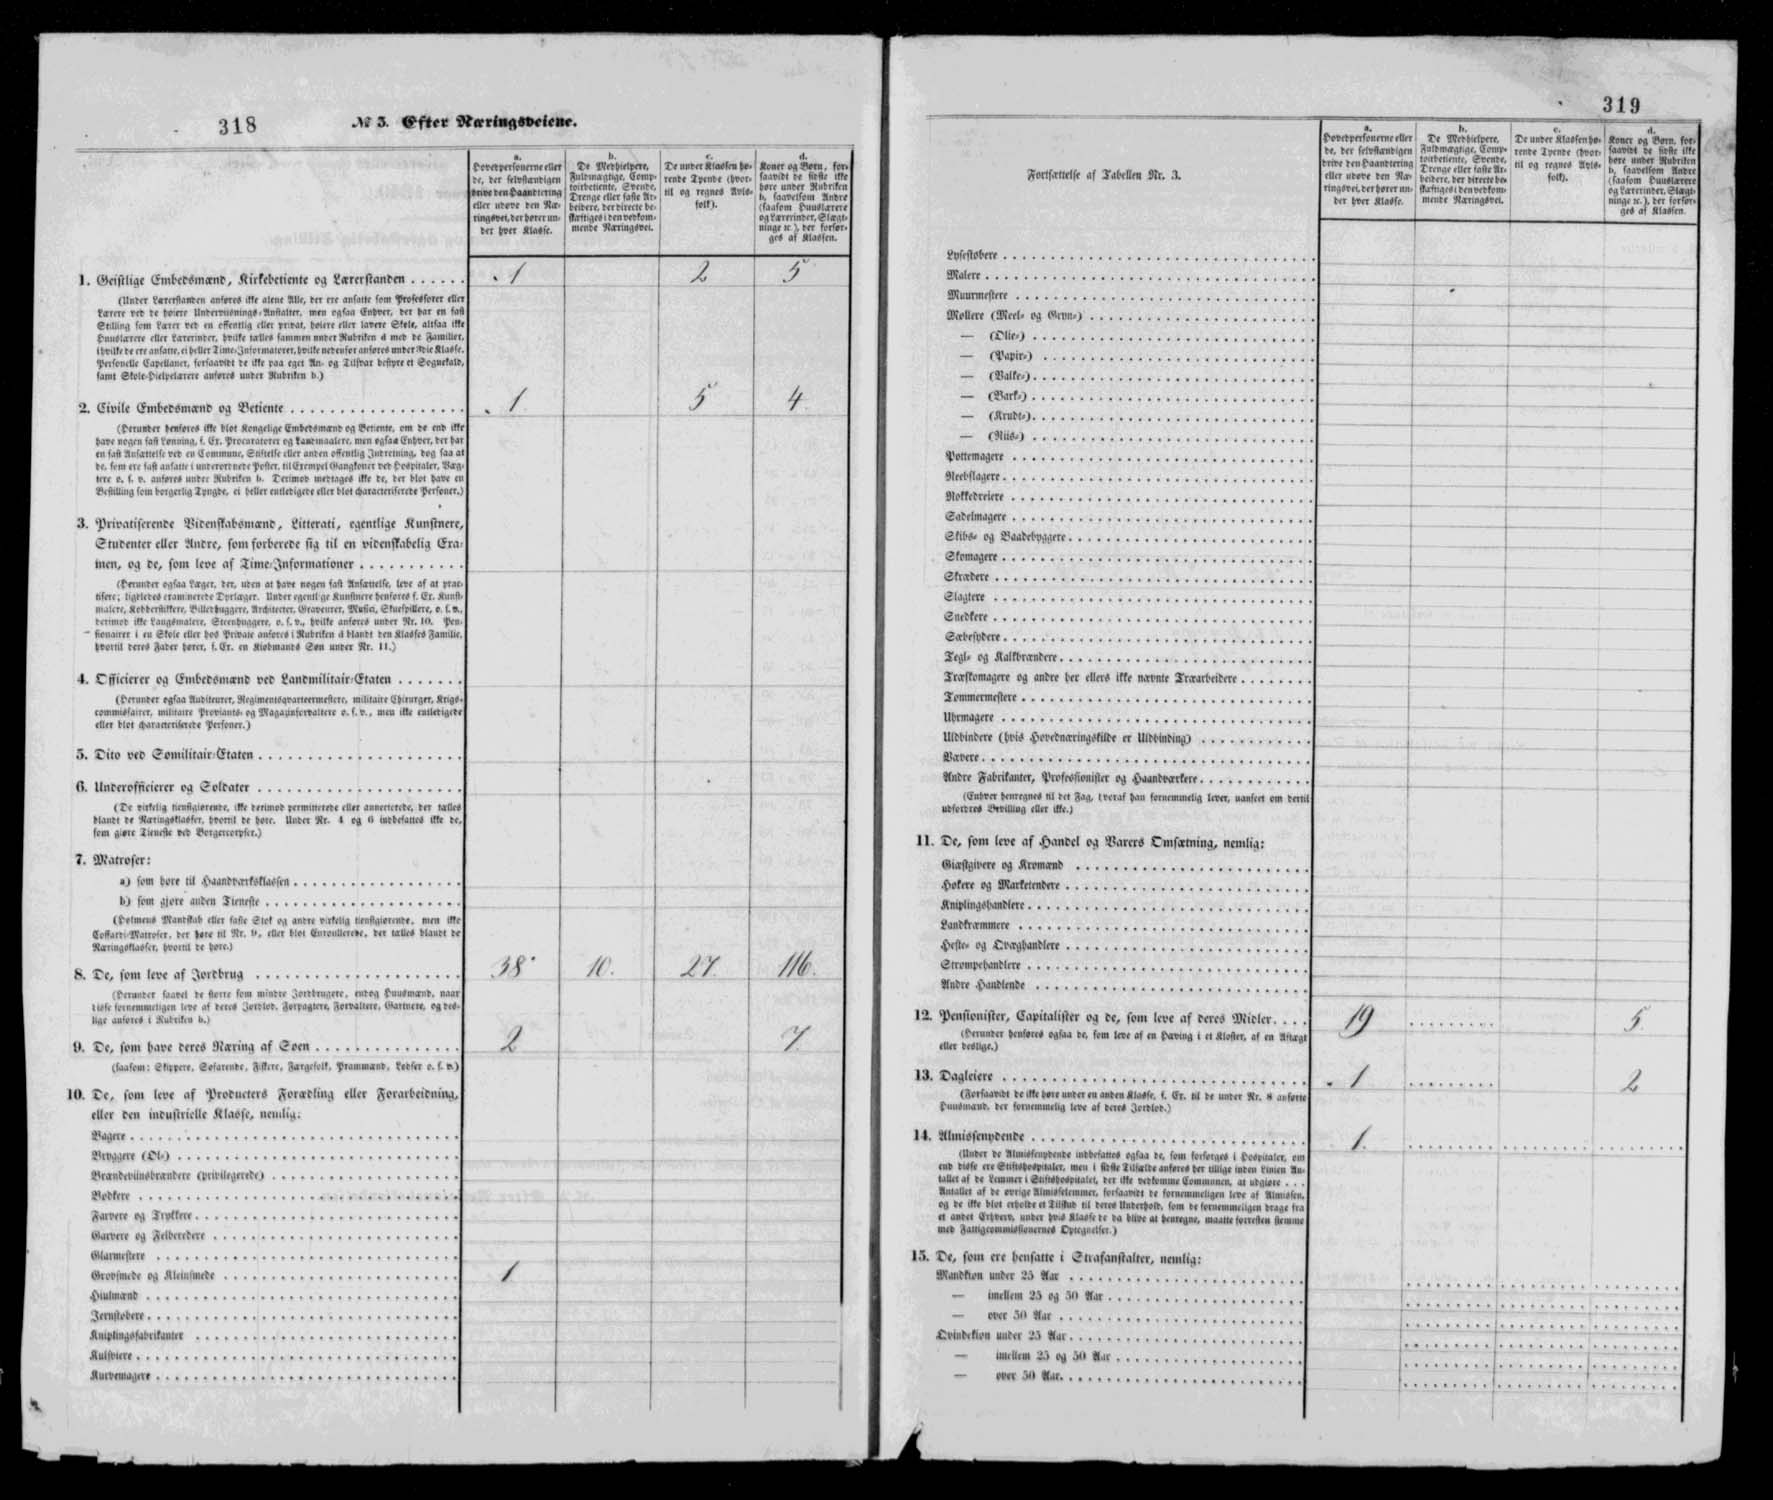 318
№ 3. Efter Næringsveiene.
a. Hovedpersonerne eller de, der selvstændigen drive den Haandtering eller udøve den Næringsvei, der hører under hver Klasse.
b. De Medhielpere, Fuldmægtige, Comptoirbetiente, Svende, Drenge eller faste Arbeidere, der directe beskæftiges i den vedkommende Næringsvei.
c. De under Klassen hørende Tyende (hvortil og regnes Avlsfolk).
d. Koner og Børn, forsaavidt de sidste ikke høre under Rubriken b, saavelsom Andre (saasom Huuslærere og Lærerinder, Slægtninge ꝛc.), der forsørges af Klassen.
1. Geistlige Embedsmænd, Kirkebetiente og Lærerstanden . . . . . . 1 2 5
(Under Lærerstanden anføres ikke alene Alle, der ere ansatte som Professorer eller
Lærere ved de høiere Underviisnings-Anstalter, men ogsaa Enhver, der har en fast
Stilling som Lærer ved en offentlig eller privat, høiere eller lavere Skole, altsaa ikke
Huuslærere eller Lærerinder, hvilke tælles sammen under Rubriken d med de Familier,
i hvilke de ere ansatte, ei heller Time-Informatorer, hvilke nedenfor anføres under 3die Klasse.
Personelle Capellaner, forsaavidt de ikke paa eget An- og Tilsvar bestyre et Sognekald,
samt Skole-Hielpelærere anføres under Rubriken b.)
2. Civile Embedsmænd og Betiente . . . . . . 1 5 4
(Herunder henføres ikke blot Kongelige Embedsmænd og Betiente, om de end ikke
have nogen fast Lønning, f. Ex. Procuratorer og Landmaalere, men ogsaa Enhver, der har
en fast Ansættelse ved en Commune, Stiftelse eller anden offentlig Indretning, dog saa at
de, som ere fast ansatte i underordnede Poster, til Exempel Gangkoner ved Hospitaler, Vægtere o. s. v. anføres under Rubriken b. Derimod medtages ikke de, der blot have en
Bestilling som borgerlig Tyngde, ei heller entledigede eller blot characteriserede Personer.)
3. Privatiserende Videnskabsmænd, Litterati, egentlige Kunstnere,
Studenter eller Andre, som forberede sig til en videnskabelig Examen, og de, som leve af Time-Informationer . . . . . .
(Herunder ogsaa Læger, der, uden at have nogen fast Ansættelse, leve af at practisere; ligeledes examinerede Dyrlæger. Under egentlige Kunstnere henføres f. Ex. Kunstmalere, Kobberstikkere, Billedhuggere, Architecter, Graveurer, Musici, Skuespillere, o. s. v.,
derimod ikke Laugsmalere, Steenhuggere, o. s. v., hvilke anføres under Nr. 10. Pensionairer i en Skole eller hos Private anføres i Rubriken d blandt den Klasses Familie,
hvortil deres Fader hører, f. Ex. en Kiøbmands Søn under Nr. 11.)
4. Officierer og Embedsmænd ved Landmilitair-Etaten . . . . . .
(Herunder ogsaa Auditeurer, Regimentsqvarteermestere, militaire Chirurger, Krigscommissairer, militaire Proviants- og Magazinforvaltere o. s. v., men ikke entledigede
eller blot characteriserede Personer.)
5. Dito ved Sømilitair-Etaten . . . . . .
6. Underofficierer og Soldater . . . . . .
(De virkelig tienstgiørende, ikke derimod permitterede eller annecterede, der tælles
blandt de Næringsklasser, hvortil de høre. Under Nr. 4 og 6 indbefattes ikke de,
som giøre Tieneste ved Borgercorpser.)
7. Matroser:
a) som høre til Haandværksklassen . . . . . .
b) som giøre anden Tieneste . . . . . .
(Holmens Mandskab eller faste Stok og andre virkelig tienstgiørende, men ikke
Coffardi-Matroser, der høre til Nr. 9, eller blot Enroullerede, der tælles blandt de
Næringsklasser, hvortil de høre.)
8. De, som leve af Jordbrug . . . . . . 38 10. 27. 116.
(Herunder saavel de større som mindre Jordbrugere, endog Huusmænd, naar
disse fornemmeligen leve af deres Jordlod, Forpagtere, Forvaltere, Gartnere, og deslige anføres i Rubriken b.)
9. De, som have deres Næring af Søen . . . . . . 2 7.
(saasom: Skippere, Søfarende, Fiskere, Færgefolk, Prammænd, Lodser o. s. v.)
10. De, som leve af Producters Forædling eller Forarbeidning,
eller den industrielle Klasse, nemlig:
Bagere . . . . . .
Bryggere (Øl-) . . . . . .
Brændeviinsbrændere (privilegerede) . . . . . .
Bødkere . . . . . .
Farvere og Trykkere . . . . . .
Garvere og Felberedere . . . . . .
Glarmestere . . . . . .
Grovsmede og Kleinsmede . . . . . . 1
Hiulmænd . . . . . .
Jernstøbere . . . . . .
Kniplingsfabrikanter . . . . . .
Kulsviere . . . . . .
Kurvemagere . . . . . .
319
Fortsættelse af Tabellen Nr. 3.
a. Hovedpersonerne eller de, der selvstændigen drive den Haandtering eller udøve den Næringsvei, der hører under hver Klasse.
b. De Medhielpere, Fuldmægtige, Comptoirbetiente, Svende, Drenge eller faste Arbeidere, der directe beskæftiges i den vedkommende Næringsvei.
c. De under Klassen hørende Tyende (hvortil og regnes Avlsfolk).
d. Koner og Børn, forsaavidt de sidste ikke høre under Rubriken b, saavelsom Andre (saasom Huuslærere og Lærerinder, Slægtninge ꝛc.), der forsørges af Klassen.
Lysestøbere . . . . . .
Malere . . . . . .
Muurmestere . . . . . .
Møllere (Meel- og Gryn-) . . . . . .
— (Olie-) . . . . . .
— (Papir-) . . . . . .
— (Valke-) . . . . . .
— (Bark-) . . . . . .
— (Krudt-) . . . . . .
— (Riis-) . . . . . .
Pottemagere . . . . . .
Reebslagere . . . . . .
Rokkedreiere . . . . . .
Sadelmagere . . . . . .
Skibs- og Baadebyggere . . . . . .
Skomagere . . . . . .
Skrædere . . . . . .
Slagtere . . . . . .
Snedkere . . . . . .
Sæbesydere . . . . . .
Tegl- og Kalkbrændere . . . . . .
Træskomagere og andre her ellers ikke nævnte Træarbeidere . . . . . .
Tømmermestere . . . . . .
Uhrmagere . . . . . .
Uldbindere (hvis Hovednæringskilde er Uldbinding) . . . . . .
Vævere . . . . . .
Andre Fabrikanter, Professionister og Haandværkere . . . . . .
(Enhver henregnes til det Fag, hvoraf han fornemmelig lever, uanseet om dertil
udfordres Bevilling eller ikke.)
11. De, som leve af Handel og Varers Omsætning, nemlig:
Giæstgivere og Kromænd . . . . . .
Høkere og Marketendere . . . . . .
Kniplingshandlere . . . . . .
Landkræmmere . . . . . .
Heste- og Qvæghandlere . . . . . .
Strømpehandlere . . . . . .
Andre Handlende . . . . . .
12. Pensionister, Capitalister og de, som leve af deres Midler. . . . 19 5.
(Herunder henføres ogsaa de, som leve af en Hæving i et Kloster, af en Aftægt
eller deslige.)
13. Dagleiere . . . . . . 1 2
(Forsaavidt de ikke høre under en anden Klasse, f. Ex. til de under Nr. 8 anførte
Huusmænd, der fornemmelig leve af deres Jordlod.)
14. Almissenydende . . . . . . 1.
(Under de Almissenydende indbefattes ogsaa de, som forsørges i Hospitaler, om
end disse ere Stiftshospitaler, men i sidste Tilfælde anføres her tillige inden Linien Antallet af de Lemmer i Stiftshospitalet, der ikke vedkomme Communen, at udgiøre . . .
Antallet af de øvrige Almisselemmer, forsaavidt de fornemmeligen leve af Almissen,
og de ikke blot erholde et Tilskud til deres Underhold, som de fornemmeligen drage fra
et andet Erhverv, under hvis Klasse de da blive at henregne, maatte forresten stemme
med Fattigcommissionernes Optegnelser.)
15. De, som ere hensatte i Strafanstalter, nemlig:
Mandkiøn under 25 Aar . . . . . .
— imellem 25 og 50 Aar . . . . . .
— over 50 Aar . . . . . .
Qvindekiøn under 25 Aar . . . . . .
— imellem 25 og 50 Aar . . . . . .
— over 50 Aar. . . . . . .